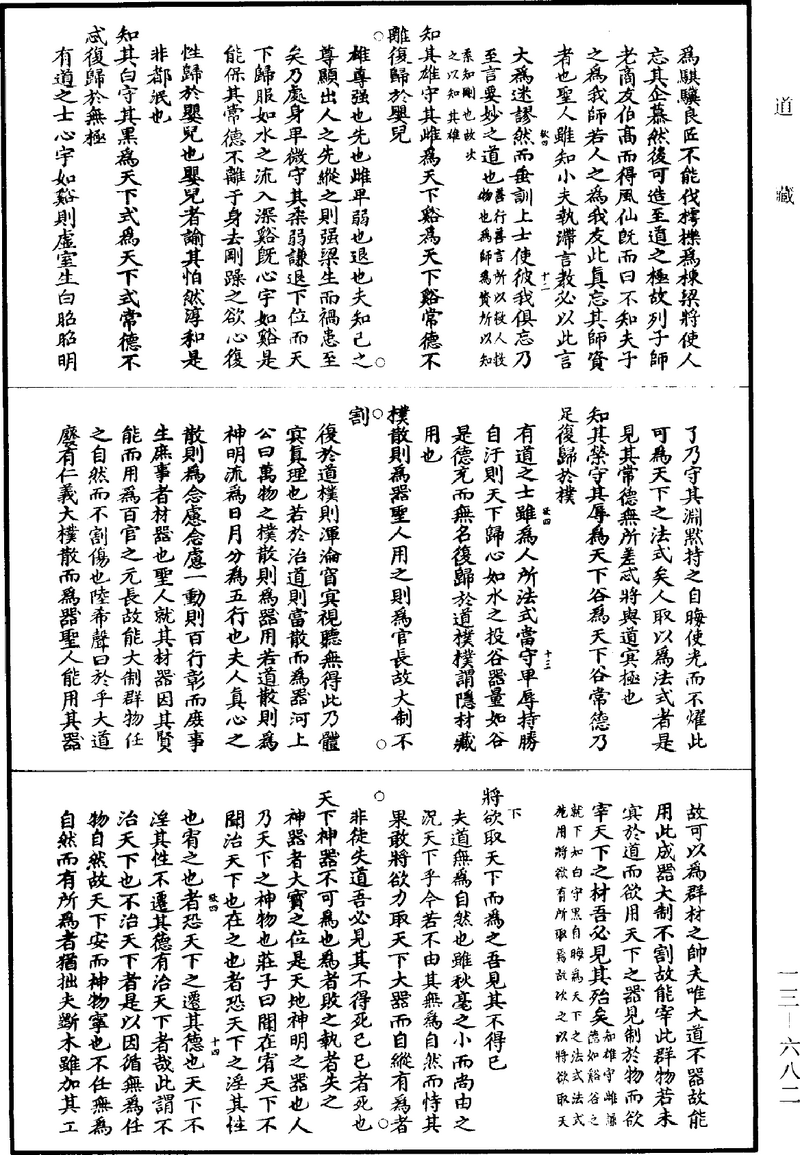 道藏
為騏驥良匠不能伐樗櫟為棟梁將使人
忘其企慕然後可造至道之極故列子師
老商友伯高而得風仙既而曰不知夫子
之為我師若人之為我友此真忘其師資
者也聖人雖知小夫執滯言教必以此言
欲四 十二
大為迷謬然而垂訓上士使彼我俱忘乃
至言要妙之道也善行善言所以救人救
物也為師為資所以知
柔知剛也故次
之以知其雄
知其雄守其雌為天下谿為天下谿常德不
離復歸於嬰兒
雄尊强也先也雌卑弱也退也夫知己之
尊顯出人之先縱之則强梁生而禍患至
矣乃處身卑微守其柔弱謙退下位而天
下歸服如水之流入深谿既心宇如谿是
能保其常德不離于身去剛躁之欲心復
性歸於嬰兒也嬰兒者諭其怕然淳和是
非都泯也
知其白守其黑為天下式為天下式常德不
忒復歸於無極
有道之士心宇如谿則虛室生白昭昭明
了乃守其淵默持之自晦使光而不燿此
可為天下之法式矣人取以為法式者是
見其常德無所差忒將與道冥極也
知其榮守其辱為天下谷為天下谷常德乃
足復歸於樸
欲四 十三
有道之士雖為人所法式當守卑辱持勝
自汙則天下歸心如水之投谷器量如谷
是德充而無名復歸於道樸樸謂隱材藏
用也
樸散則為器聖人用之則為官長故大制不
割
復於道樸則渾淪窅冥視聽無得此乃體
冥真理也若於治道則當散而為器河上
公曰萬物之樸散則為器用若道散則為
神明流為日月分為五行也夫人真心之
散則為念慮念慮一動則百行彰而庶事
生庶事者材器也聖人就其材器因其賢
能而用為百官之元長故能大制群物任
之自然而不割傷也陸希聲曰於乎大道
廢有仁義大樸散而為器聖人能用其器
故可以為群材之帥夫唯大道不器故能
用此成器大制不割故能宰此群物若未
冥於道而欲用天下之器見制於物而欲
宰天下之材吾必見其殆矣知雄守雌謙
德如谿谷之
就下知白守黑自晦為天下之法式法式
施用將欲有所取為故次之以將欲取天
下
將欲取天下而為之吾見其不得已
夫道無為自然也雖秋毫之小而尚由之
況天下乎今若不由其無為自然而恃其
果敢將欲力取天下大器而自縱有為者
非徒失道吾必見其不得死已已者死也
天下神器不可為也為者敗之執者失之
神器者大寶之位是天地神明之器也人
乃天下之神物也莊子曰聞在宥天下不
聞治天下也在之也者恐天下之淫其性
欲四 十四
也宥之也者恐天下之遷其德也天下不
淫其性不遷其德有治天下者哉此謂不
治天下也不治天下者是以因循無為任
物自然故天下安而神物寧也不任無為
自然而有所為者猶拙夫斲木雖加其工
一三—六八二